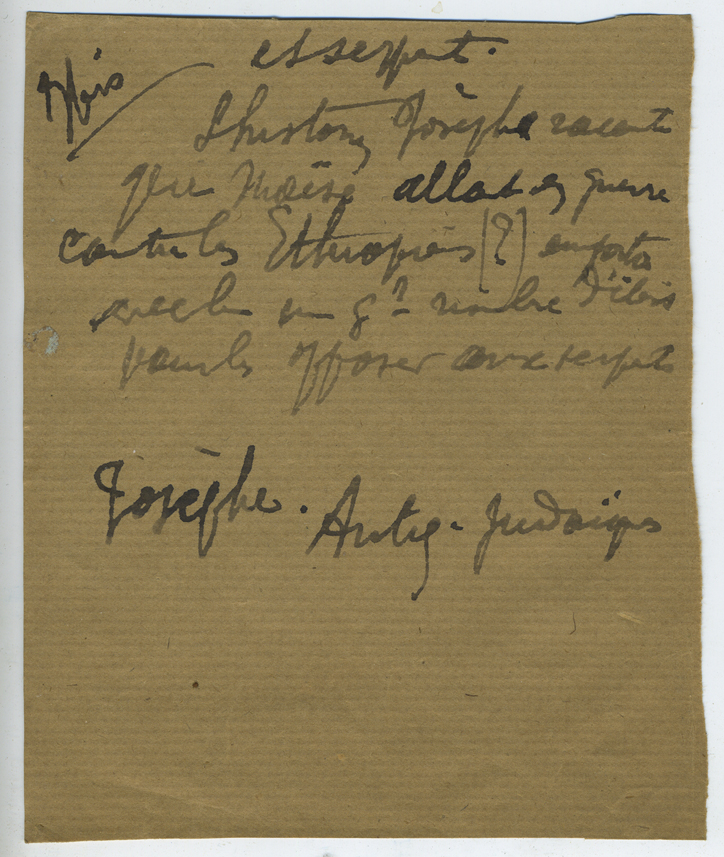 Ibis
et serpent.
L'historien Josèphe raconte
que Moïse allant en guerre
contre les Ethiopiens (?) emporta
avec lui un gd nombre d'ibis
pour les opposer aux serpents
Josèphe. Antiq. Judaïques